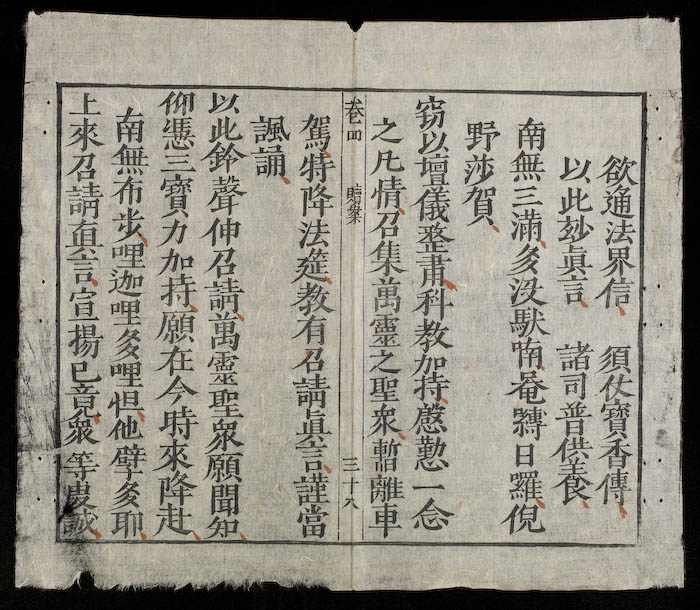 欲通法界信　須仗寶香傳
以此妙眞言　諸司普供養
南無三滿多沒馱喃唵嚩日囉倪
野莎賀
窃以壇儀整肅科教加持慇懃一念
之凡情召集萬靈之聖衆暫離車
卷四　三十八
駕特降法筵教有召請眞言謹當
諷誦
以此鈴聲伸召請萬靈聖衆願聞知
仰憑三寶力加持願在今時來降赴
南無布步哩迦哩多哩怛他孽多耶
上來召請眞言宣揚已竟衆等虔誠